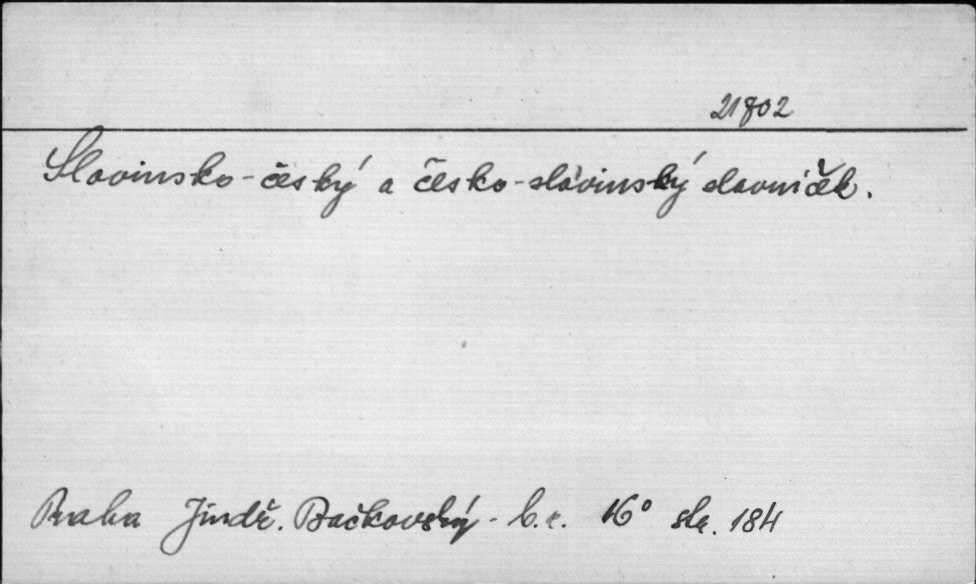 21802
Slovinsko-český a česko-slovinský slovníček.
Praha Jindř. Bačkovský - b.r. 16° str. 184